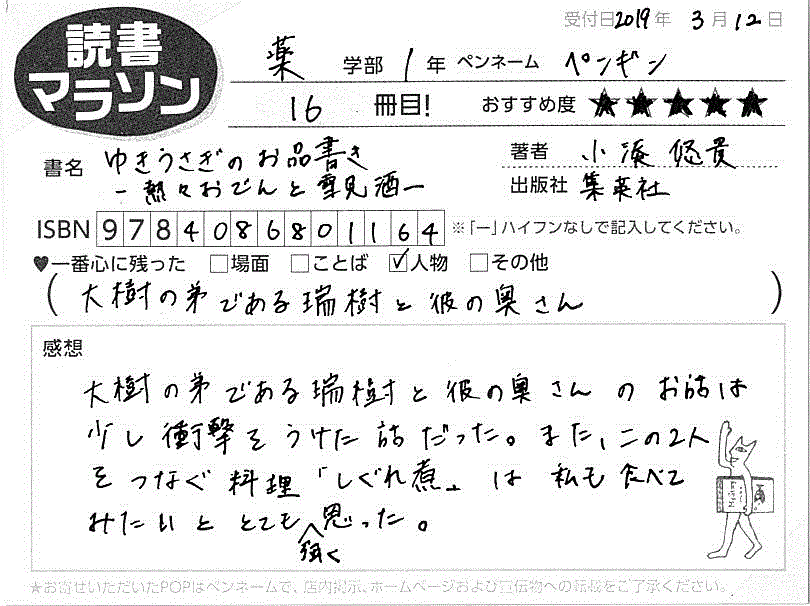 受付日2019年 3月12日
読書
マラソン
薬 学部 1年 ペンネーム ペンギン
16 冊目! おすすめ度 ★★★★★
書名 ゆきうさぎのお品書き
-熱々おでんと雪見酒-
著者 小湊 悠貴
出版社 集英社
ISBN 9784086801164 ※「ー」ハイフンなしで記入してください。
♥一番心に残った □場面 □ことば ☑人物 □その他
(大樹の弟である瑞樹と彼の奥さん)
感想
大樹の弟である瑞樹と彼の奥さんのお話は
少し衝撃をうけた話だった。また、この2人
をつなぐ料理「しぐれ煮」は私も食べて
みたいととても強く思った。
★お寄せいただいたPOPはペンネームで、店内掲示、ホームページおよび宣伝物への転載をご了承ください。